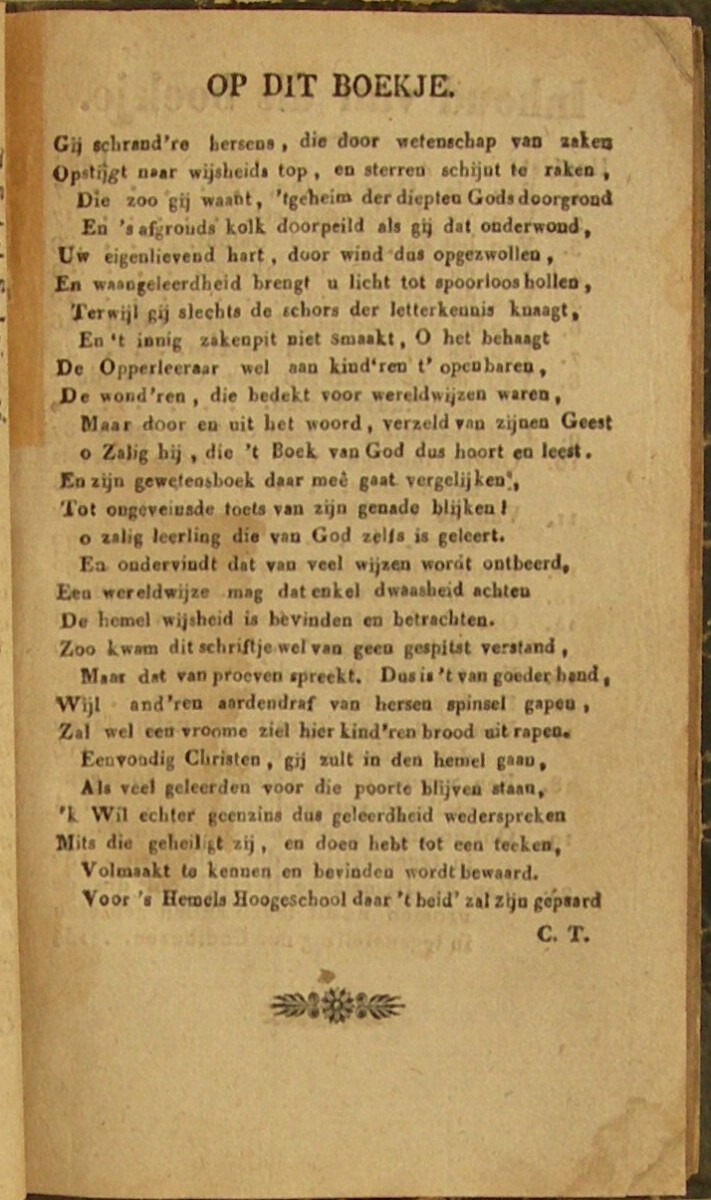 OP DIT BOEKJE.
Gij schrand're hersens, die door wetenschap van zaken
Opstijgt naar wijsheids top, en sterren schijnt te raken,
Die zoo gij waant, 't geheim der diepten Gods doorgrond
En 's afgronds' kolk doorpeild als gij dat onderwond,
Uw eigenlievend hart, door wind dus opgezwollen,
En waangeleerdheid brengt u licht tot spoorloos hollen,
Terwijl gij slechts de schors der letterkennis knaagt,
En 't innig zakenpit niet smaakt, O het behaagt
De Opperleeraar wel aan kind'ren t' openbaren,
De wond'ren, die bedekt voor wereldwijzen waren,
Maar door en uit het woord, verzeld van zijnen Geest
o Zalig hij, die 't Boek van God dus hoort en leest.
En zijn gewetensboek daar meê gaat vergelijken',
Tot ongeveinsde toets van zijn genade blijken!
o zalig leerling die van God zelfs is geleert.
En ondervindt dat van veel wijzen wordt ontbeerd,
Een wereldwijze mag dat enkel dwaasheid achten
De hemel wijsheid is bevinden en betrachten.
Zoo kwam dit schriftje wel van geen gespitst verstand,
Maar dat van proeven spreekt. Dus is 't van goeder hand,
Wijl and'ren aardendraf van hersen spinsel gapen,
Zal wel een vroome ziel hier kind'ren brood uit rapen.
Eenvoudig Christen, gij zult in den hemel gaan,
Als veel geleerden voor die poorte blijven staan,
'k Wil echter geenzins dus geleerdheid wederspreken
Mits die geheiligt zij, en doen hebt tot een teeken,
Volmaakt te kennen en bevinden wordt bewaard.
Voor 's Hemels Hoogeschool daar 't beid' zal zijn gepaard
C. T.